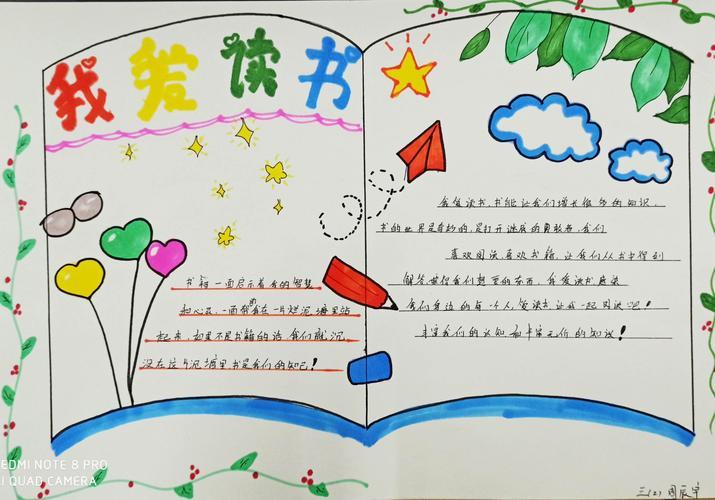 我爱读书
书籍一面启示着我的智慧
和心灵，一面帮我在一片烂泥塘里站
起来，如果不是书籍的话，我们就沉
没在这片泥塘里书是我们的知己！
我爱读书，书能让我们增长很多的知识，
书的世界是奇妙的，是打开迷
的
我们
喜欢阅读喜欢书籍，让我们从书中得到
解答
我们想要的东西，我爱读书
我们身边的每一个人，爱读书让我一起阅读吧！
丰富我们的认知和丰富无价的知识！
三(2)周辰宇
REDMI NOTE 8 PRO
AI QUAD CAMERA